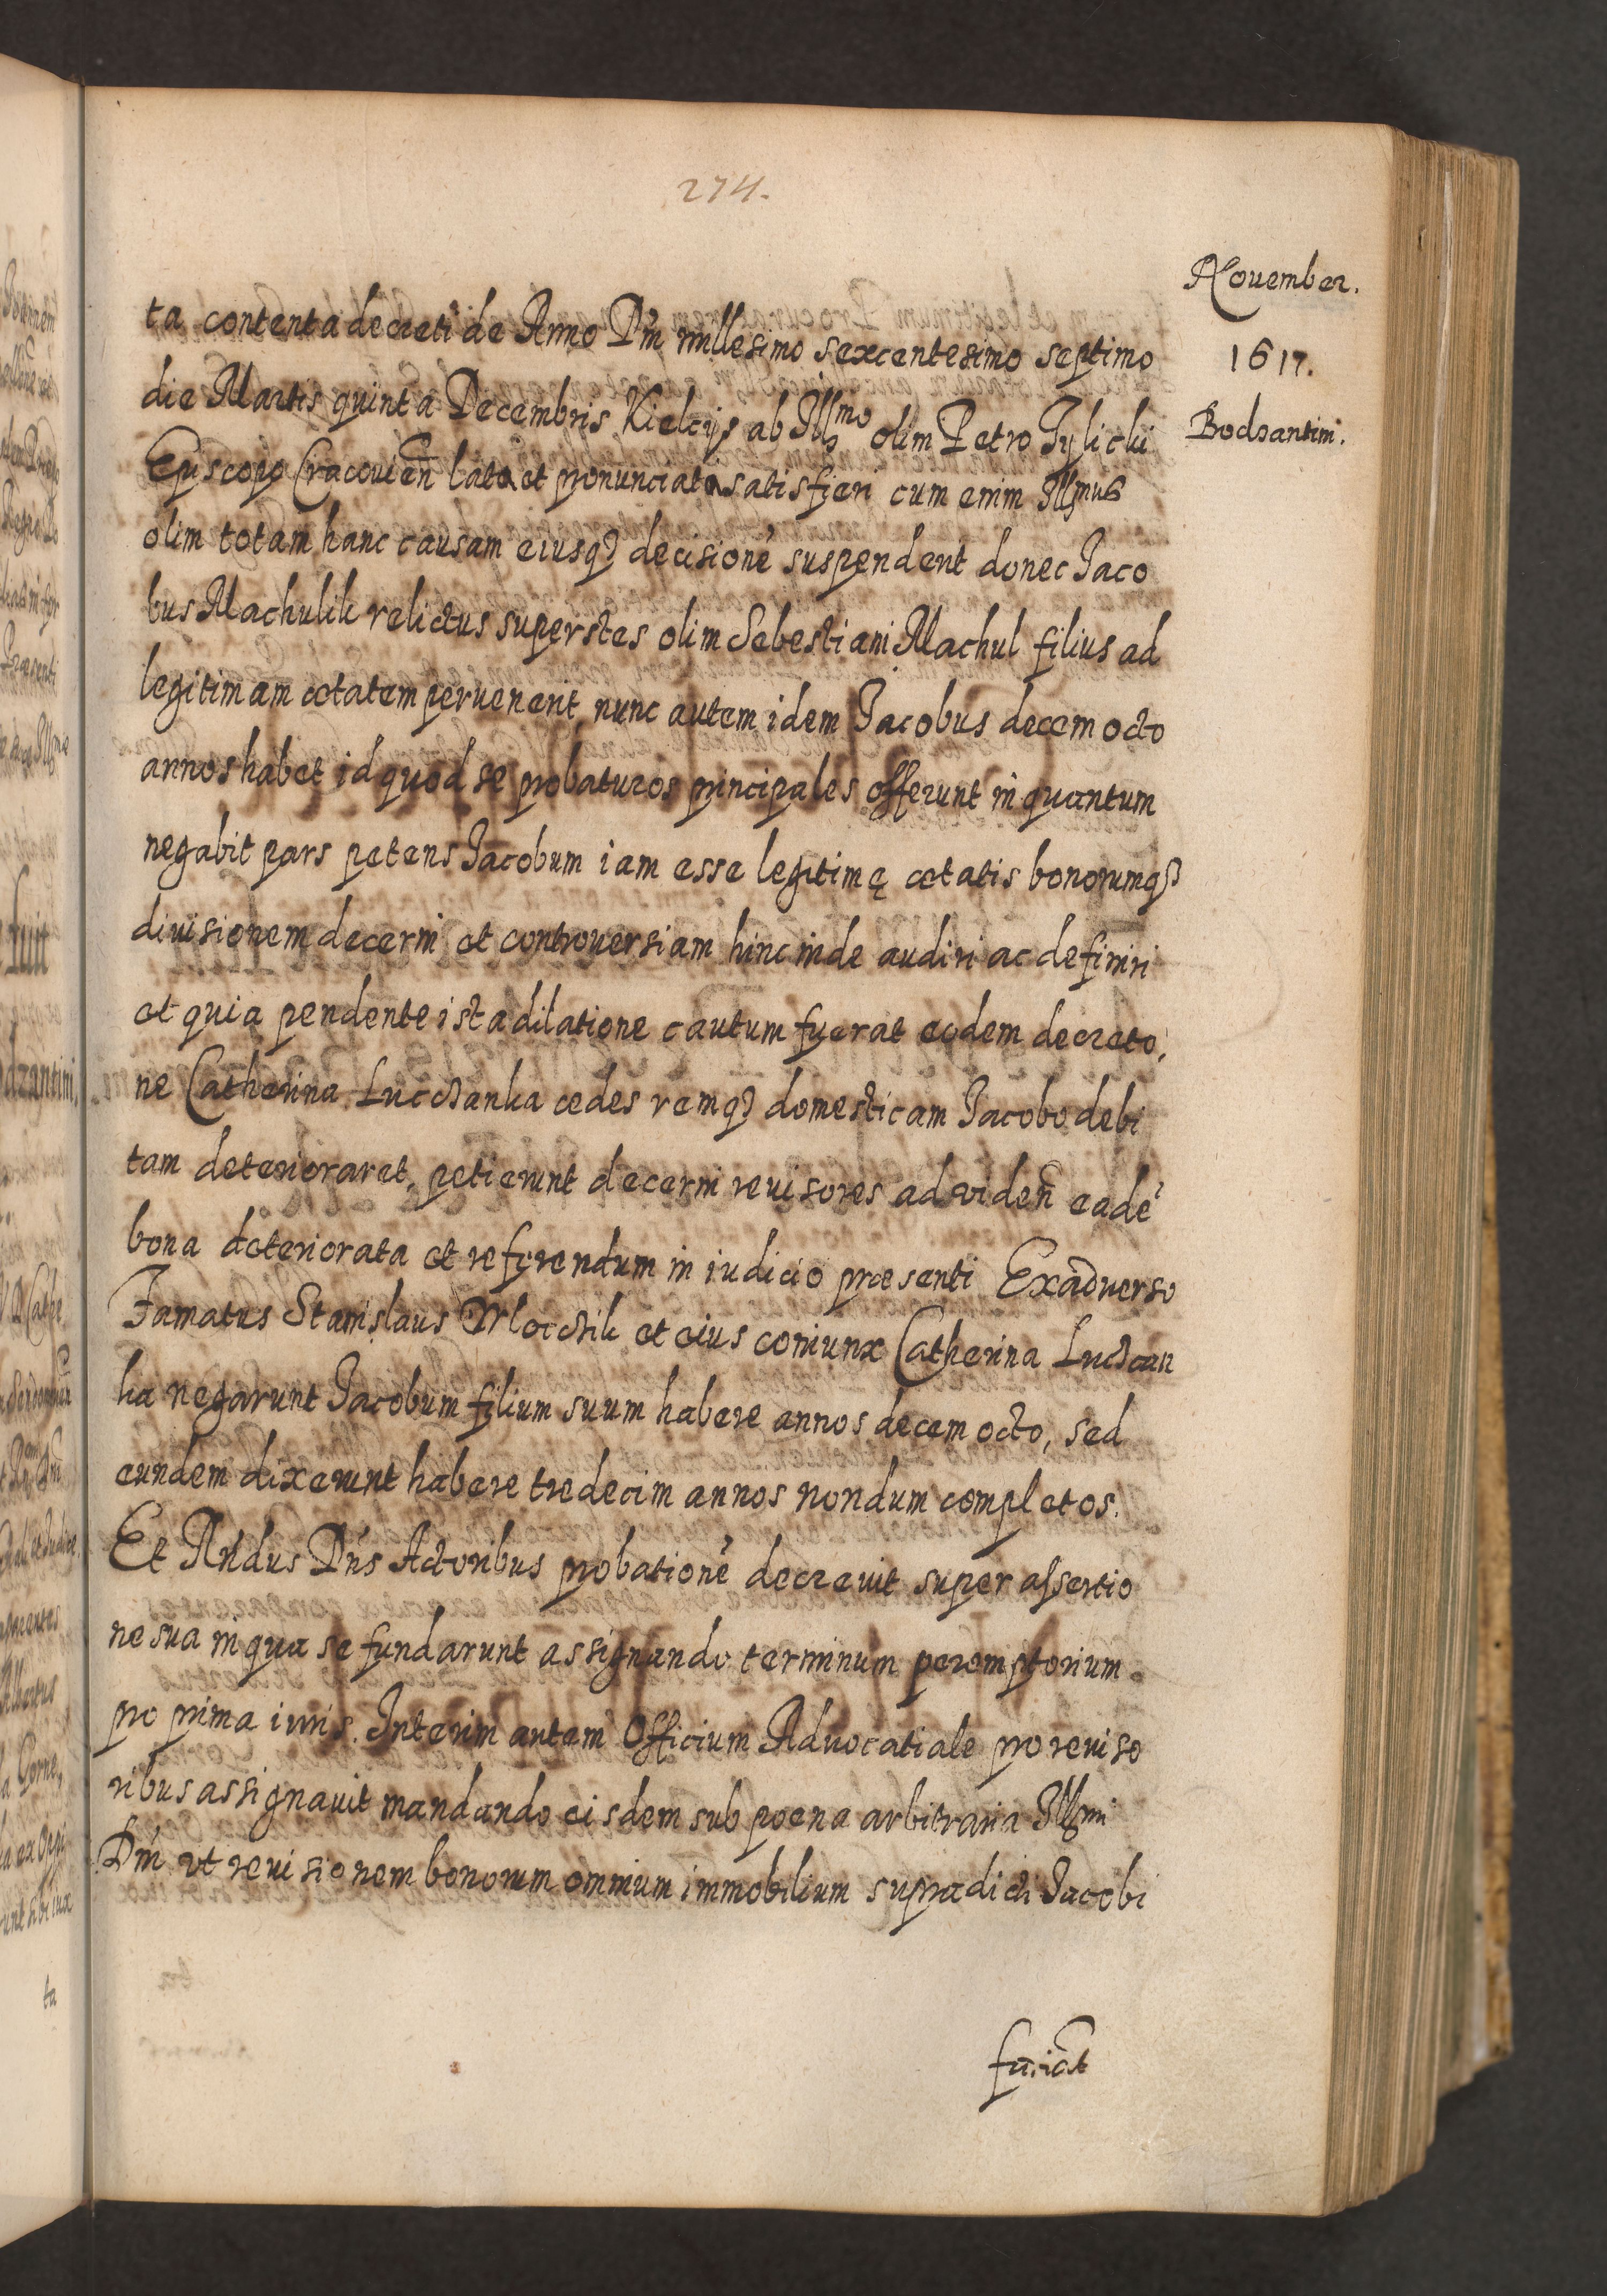 274.
November.
1617.
Bodzantini.
ta contenta decreti de Anno Dni millesimo sexcentesimo septimo
die Martis quinta Decembris Kielcijs ab Illmo olim Petro Tylicki
Episcopo Cracovien lata et pronunciata satisfieri cum enim Illmus
olim totam hanc causam eiusq decisione suspenderit donec Jaco
bus Machulik relictus superstes olim Sebestiani Machul filius ad
legitimam ætatem pervenerit, nunc autem idem Jacobus decem octo
annos habet id quod se probaturos principales offerunt in quantum
negabit pars petens Jacobum iam esse legitimę ætatis bonorumq
divisionem decerni et controversiam hinc inde audiri ac definiri
et quia pendente ista dilatione cautum fuerat eodem decreto,
ne Catherina Luczanka ædes remq domesticam Jacobo debi
tam deterioraret, petierunt decerni revisores ad viden eade
bona deteriorata et referendum in iudicio præsenti Exadverso
Famatus Stanislaus Mloczik et eius coniunx Catherina Luczan
ka negarunt Jacobum filium suum habere annos decem octo, sed
eundem dixerunt habere tredecim annos nondum completos.
Et Rndus Dns Actoribus probatione decrevit super assertio
ne sua in qua se fundarunt assignando terminum peremptorium
pro prima iuris. Interim autem Officium Advocatiale pro reviso
ribus assignavit mandando eisdem sub poena arbitraria Illmi
Dni vt revisionem bonorum omnium immobilium supradicti Jacobi
faciat